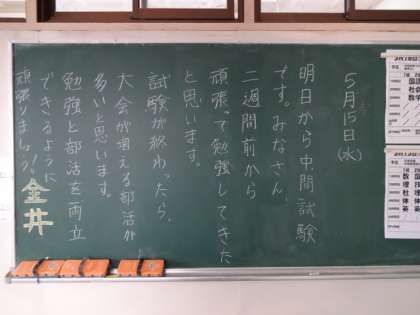 5月15日(水)
明日から中間試験
です。みなさん、
二週間前から
頑張って勉強してきた
と思います。
試験が終わったら、
大会が増える部活が
多いと思います。
勉強と部活を両立
できるように
頑張りましょう!!
金井